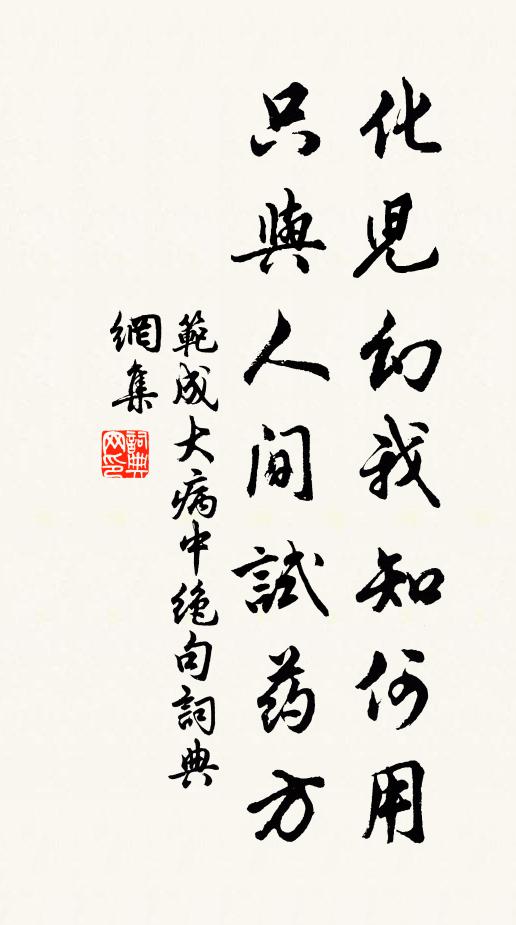 化児幻我知何用
只與人間試药方
範成大病中绝句詞典
網集
詞典网印